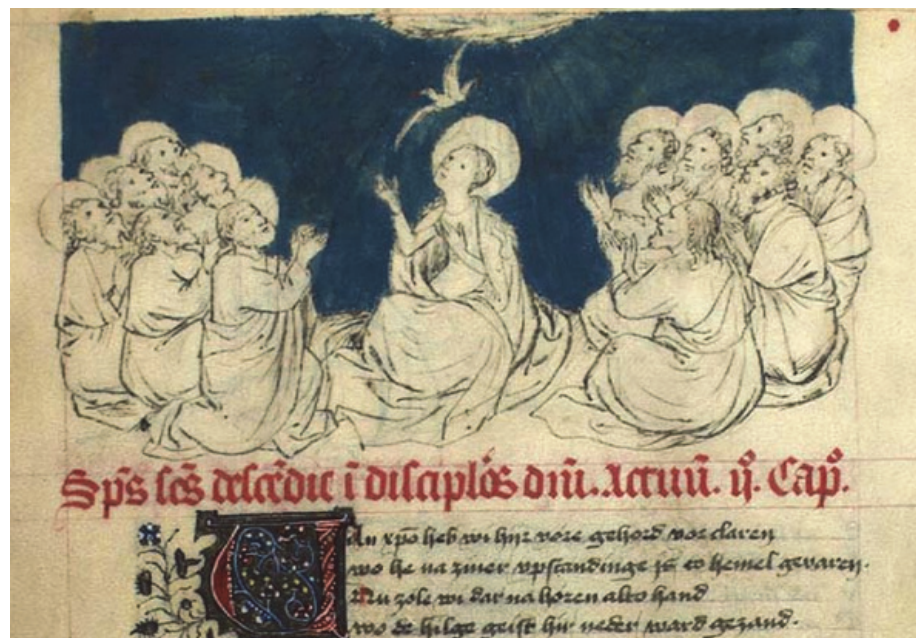 Sp̄s sc̄s descēdit ī disciplōs dn̄i. Actuū. ij. Cap̊.
Uan xp̄o heb wi hijr vore gehord vor claren
wo he na ziner vpstandinge is to hemel gevaren.
Nu zole wi dar na horen alto hand
wo de hilge geist hir neder ward gezand.